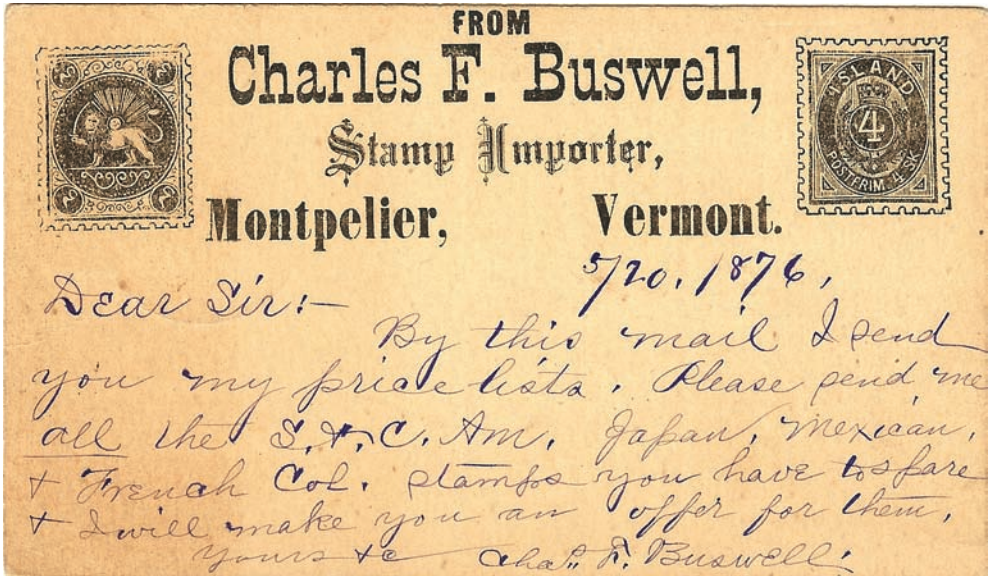 FROM
Charles F. Buswell,
Stamp Importer,
Montpelier, Vermont.
2 2
2 2
4 ISLAND
4
POSTFRIM. 4 SK.
5/20. 1876,
Dear Sir:—
By this mail I send
you my price lists. Please send me
all the S. & C. Am. Japan, Mexican,
& French Col. stamps you have to spare
& I will make you an offer for them.
Yours &c Chas. F. Buswell.